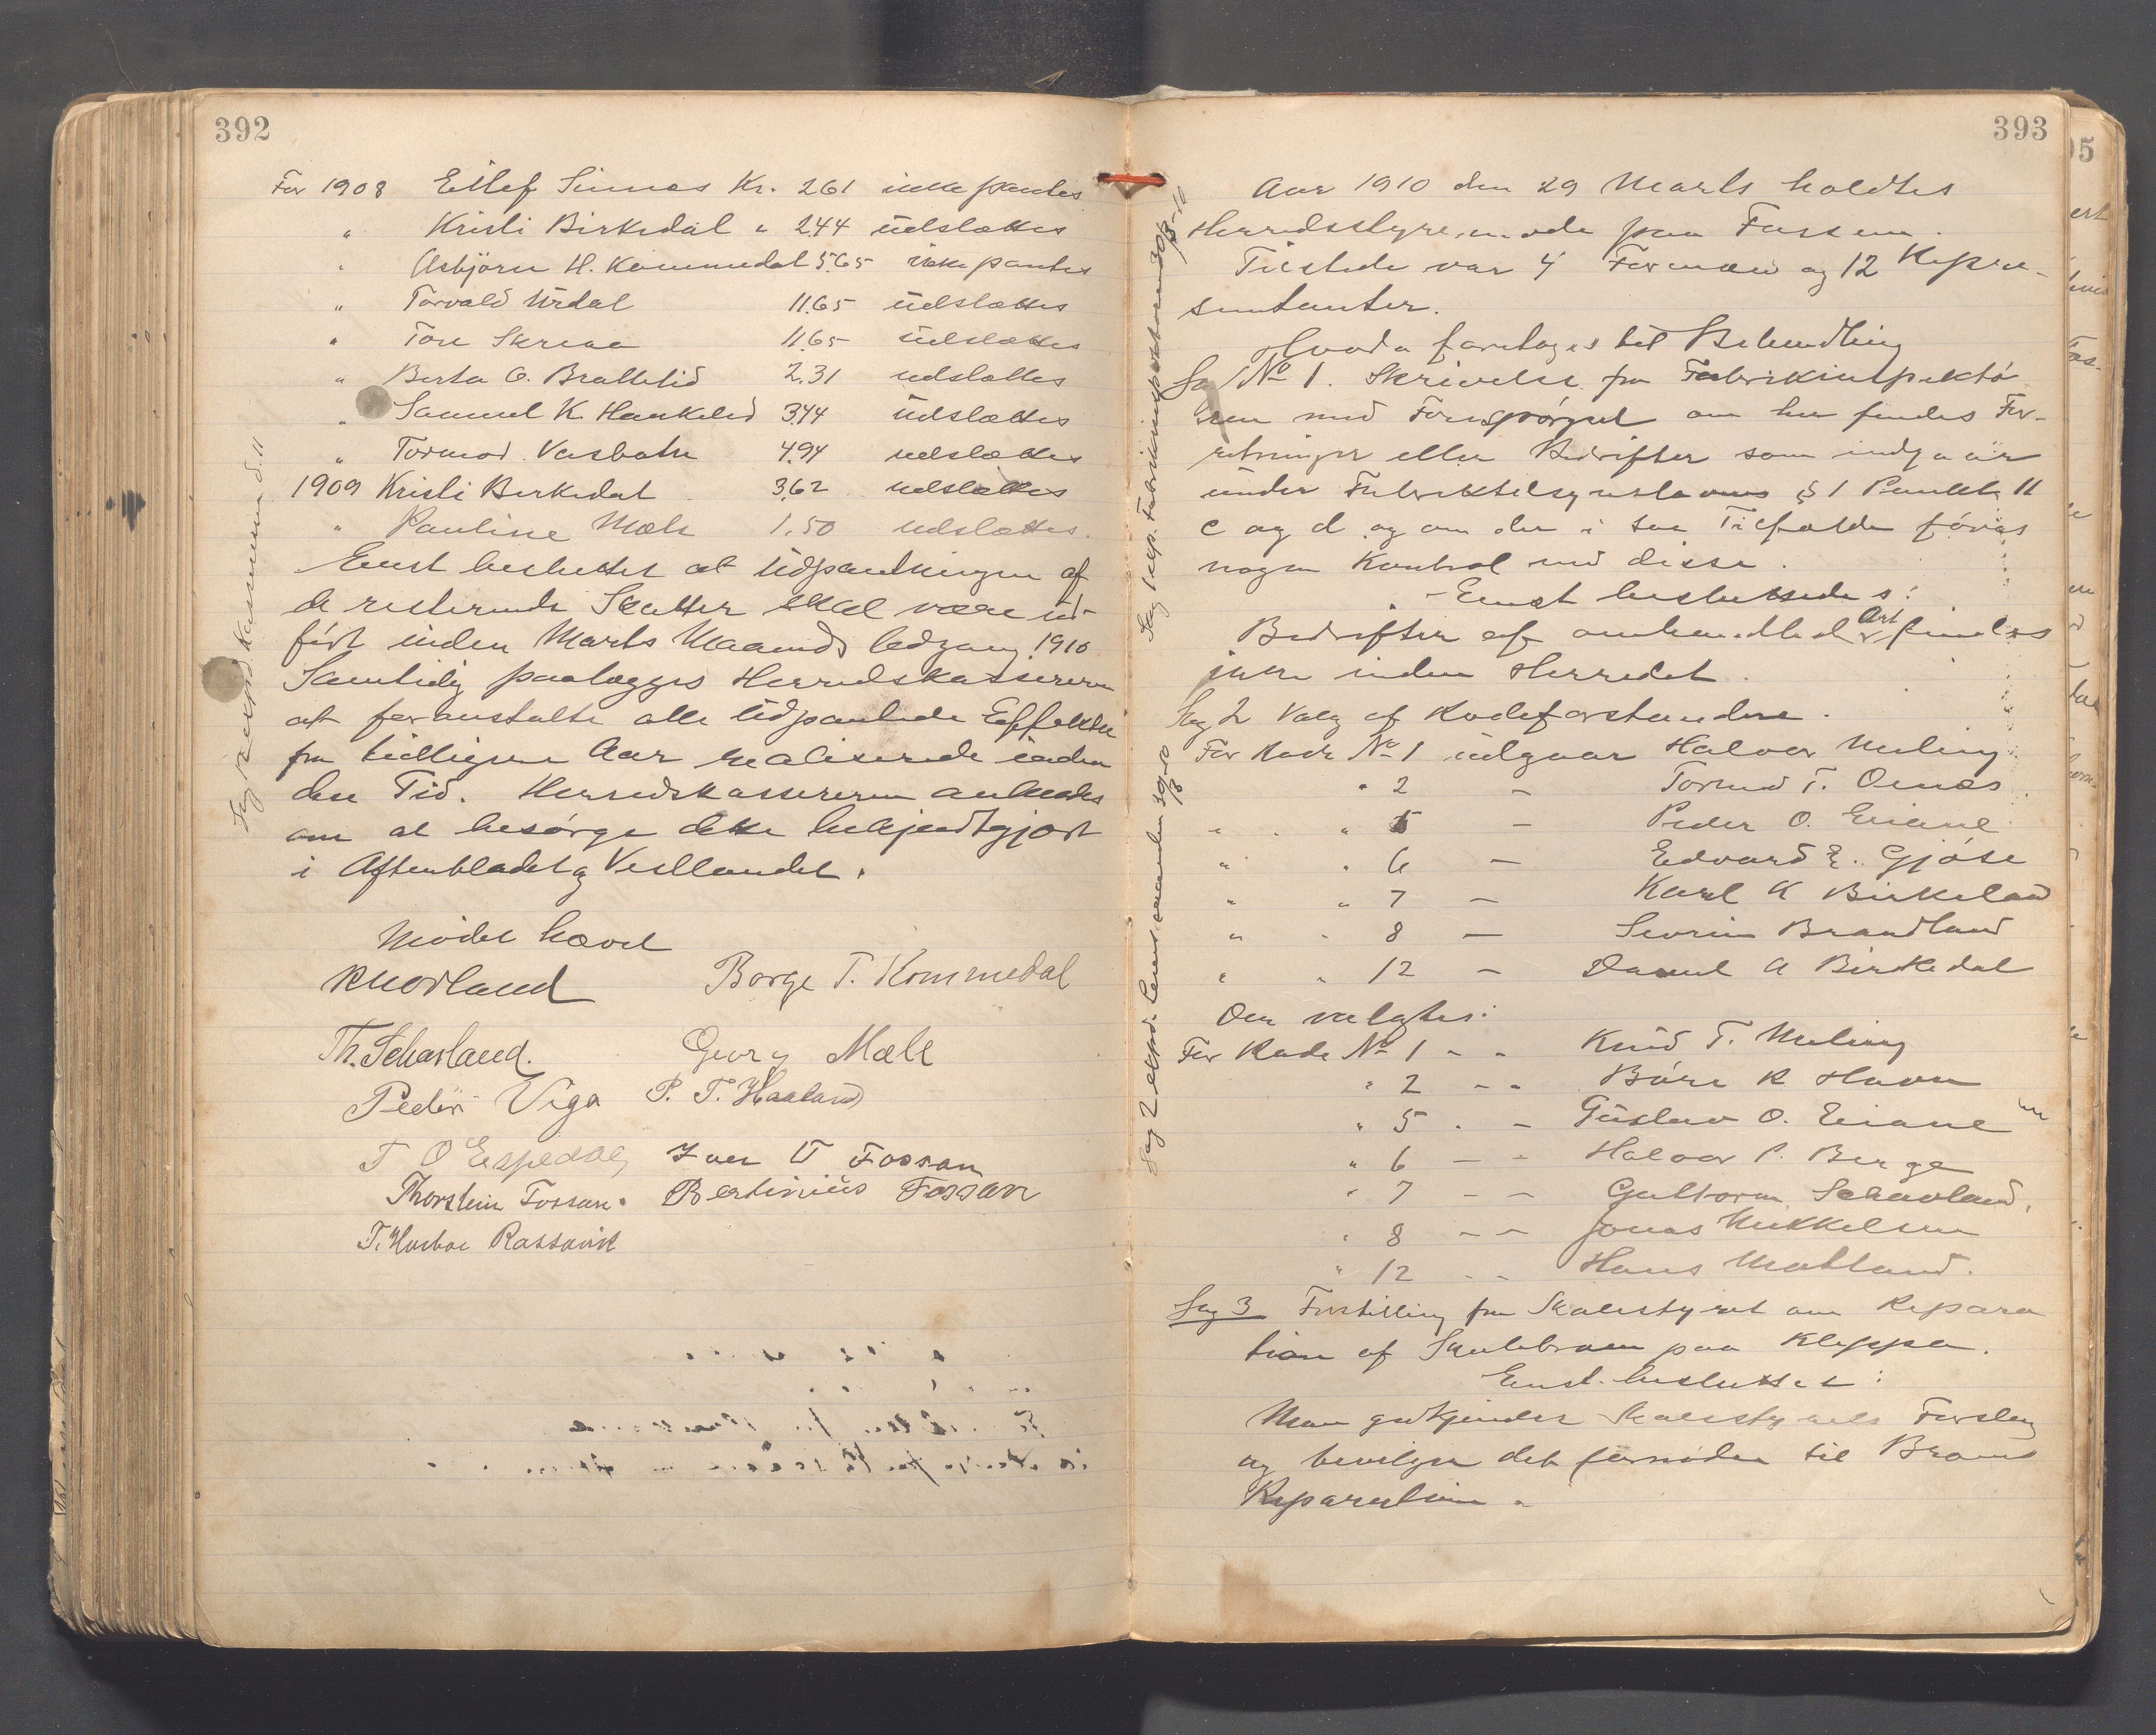 392
For 1908 Eilef Sinnes Kr. 261 ikke pantes
" Kristi Birkedal " 244 udslættes
" Asbjørn H. Kommedal 5.65 ikke pantes
" Torvald Urdal 11.65 udslættes
" Tore Skreaa 11.65 udslættes
" Berta O. Brattelid 2.31 udslættes
" Samuel K. Haukelid 344 udslættes
" Tormod Vasbotn 494 udslættes
1909 Kristi Birkedal 362 udslættes
" Pauline Mæle 1.50 udslættes.
Enst besluttet at Udpantningen af
de resterende Skatter skal være ud-
ført inden Marts Maaneds Udgang 1910
Samtidig paalægges Herredskassereren
at foranstalte alle udpantede Effekter
fra tidligere Aar realiserede inden
den Tid. Herredskassereren anmodes
om at besørge dette bekjendtgjort
i Aftenbladet og Vestlandet.
Mødet hævet
RNorland Borge T. Kommedal
Th. Schavland. Georg Mæle
Peder Viga P. T. Haaland
T O Espedal Iver T Fossan
Thorstein Fossan. Bertinius Fossan
T. Husbøe Rossavik
393
Aar 1910 den 29 Marts holdtes
Herredsstyremøde paa Fossan.
Tilstede var 4 Formænd og 12 Repræ-
sentanter.
Hvoda foretoges til Behandling
Sag No 1. Skrivelse fra Fabrikinspektø
ren med Forespørgsel om her findes For-
retninger eller Bedrifter som indgaar
under Fabriktilsynsloven § 1 Punkt 11
c og d og om der i saa Tilfælde føres
nogen Kontrol med disse.
Enst besluttedes:
Bedrifter af omhandlede Art findes
ikke inden Herredet.
Sag 2 Valg af Rodeforstandere.
For Rode No 1 udgaar Halvor Meling
" 2 — Tormod T. Oenæs
" " " 5 — Peder O. Eiane
" " 6 — Edvard E. Gjøse
" " 7 — Karl K Birkeland
" " 8 — Severin Brandland
" " 12 — Daniel A Birkedal
Om valgtes:
For Rode No 1 - - Knud T. Meling
" 2 - - Børe R Havn
" 5 - - Gustav O. Eiane
" 6 - - Halvor P. Berge
" 7 - - Guttorm Schavland.
" 8 - - Jonas Mikkelsen
" 12 - - Hans Mætland.
Sag 3 Forstilling fra Skolestyret om Repara
tion af Skolebroen paa Kleppa.
Enst. besluttet:
Man godkjender Skolestyrets Forslag
og bevilger det fornødne til Broens
Reparation.